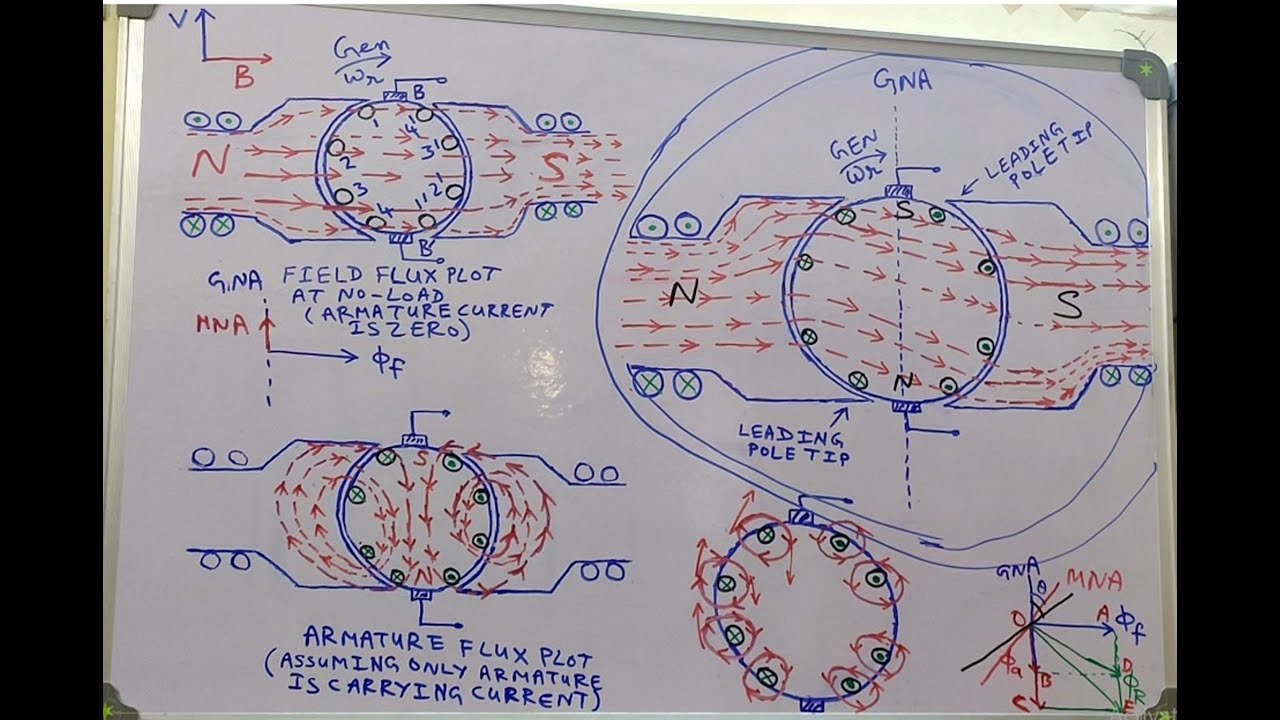 V
B
Gen
Wr
B
1
4'
2
3'
N
S
3
2'
4
1'
B
GNA
FIELD FLUX PLOT
AT NO-LOAD
(ARMATURE CURRENT
IS ZERO)
MNA
Φf
S
N
ARMATURE FLUX PLOT
(ASSUMING ONLY ARMATURE
IS CARRYING CURRENT)
GNA
GEN
Wr
LEADING
POLE TIP
S
N
S
N
LEADING
POLE TIP
GNA
θ
MNA
O
A
Φf
Φa
B
D
ΦR
C
E